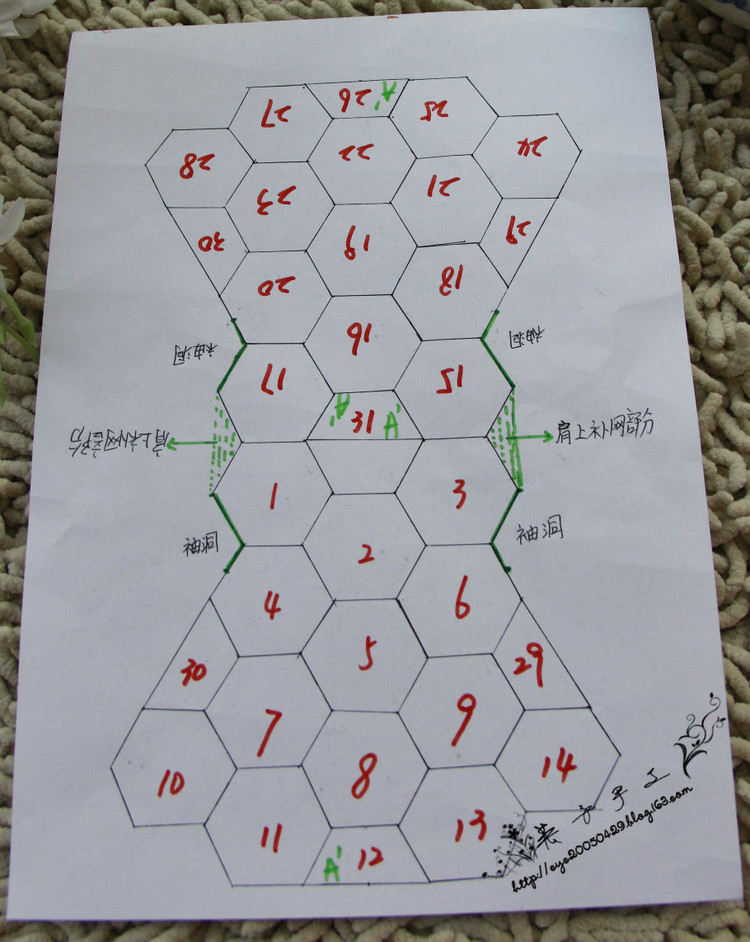 27
26
A'
25
28
22
24
23
21
30
19
29
20
18
袖洞
16
袖洞
17
15
A'
31
A'
肩上补网部分
肩上补网部分
1
3
袖洞
2
袖洞
4
6
5
30
29
7
9
10
8
14
11
13
A'
12
手工
http://eyo20050429.blog.163.com